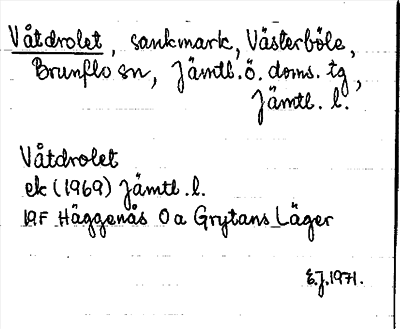 Våtdrolet, sankmark, Västerböle,
Brunflo sn, Jämtl. ö. doms. tg,
Jämtl. l.
Våtdrolet
ek (1969) Jämtl. l.
19F Häggenås 0a Grytans Läger
E.J. 1971.